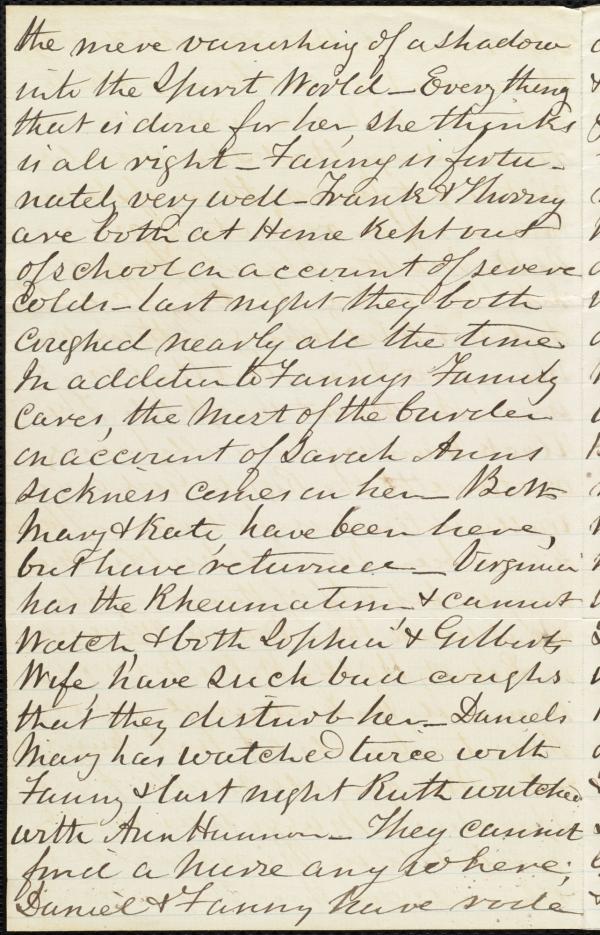 the mere vanishing of a shadow
into the Spirit World – Everything
that is done for her, she thinks
is all right – Fanny is fortu-
nately very well – Frank & Thorny
are both at Home kept out
of school on account of severe
colds – last night they both
coughed nearly all the time
In addition to Fannys Family
cares, the most of the burden
on account of Sarah Anns
sickness comes on her – Both
Mary & Kate, have been here,
but have returned – Virginia
has the Rheumatism & cannot
Watch, & both Sophia & Gilberts
Wife, have such bad coughs
that they disturb her – Daniels
Mary has watched twice with
Fanny & last night Ruth watched
with Ann – They cannot
find a Nurse any where;
Daniel & Fanny have rode